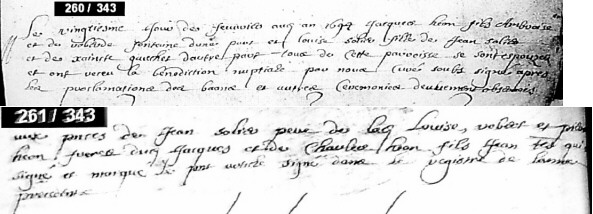 260 / 343
Le vingtiesme jour de feuvrier aud an 1694 Jacques heon fils Ambroise
et de roberde fonteine dune part et louise salies fille de Jean salies
et de xainte quechet dautre part tous de cette parroisse se sont espousez
et ont receu la benediction nuptiale par nous curé soubs signé apres
les proclamations des banns et autres ceremonies deuement observés
261 / 343
aux pnces de Jean salies pere de lad Louise, robert et
heon freres dud Jacques et de Charles heon fils Jean tes qui
signé et marque de sont notiche signé dans le registre de lanne
precedente